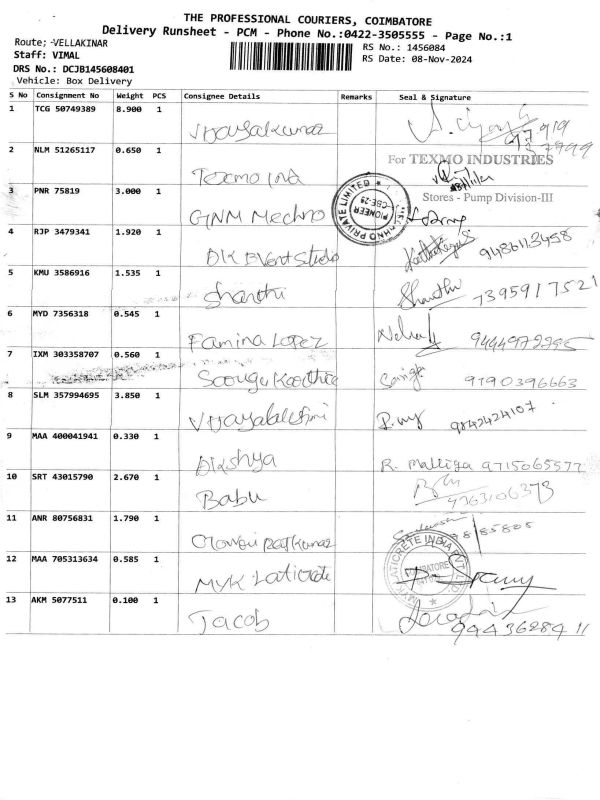 THE PROFESSIONAL COURIERS, COIMBATORE
Delivery Runsheet - PCM - Phone No.:0422-3505555 - Page No.:1
Route; -VELLAKINAR
RS No.: 1456084
Staff: VIMAL
RS Date: 08-Nov-2024
DRS No.: DCJB145608401
Vehicle: Box Delivery
S No Consignment No Weight PCS Consignee Details Remarks Seal & Signature
1 TCG 50749389 8.900 1 Vijayakumar
2 NLM 51265117 0.650 1 Texmo Ind For TEXMO INDUSTRIES
Stores - Pump Division-III
3 PNR 75819 3.000 1 GNM Mechno
4 RJP 3479341 1.920 1 DK Event Studio 9486113458
5 KMU 3586916 1.535 1 Shanthi Shanthi 7395917521
6 MYD 7356318 0.545 1 Famina Lopez 9444972295
7 IXM 303358707 0.560 1 9190396663
8 SLM 357994695 3.850 1 Vijayalakshmi 9842424107
9 MAA 400041941 0.330 1 Dikshya R. Malliga 9715065577
10 SRT 43015790 2.670 1 Babu
11 ANR 80756831 1.790 1
12 MAA 705313634 0.585 1 MYK Laticrete
13 AKM 5077511 0.100 1 Jacob
9443628411